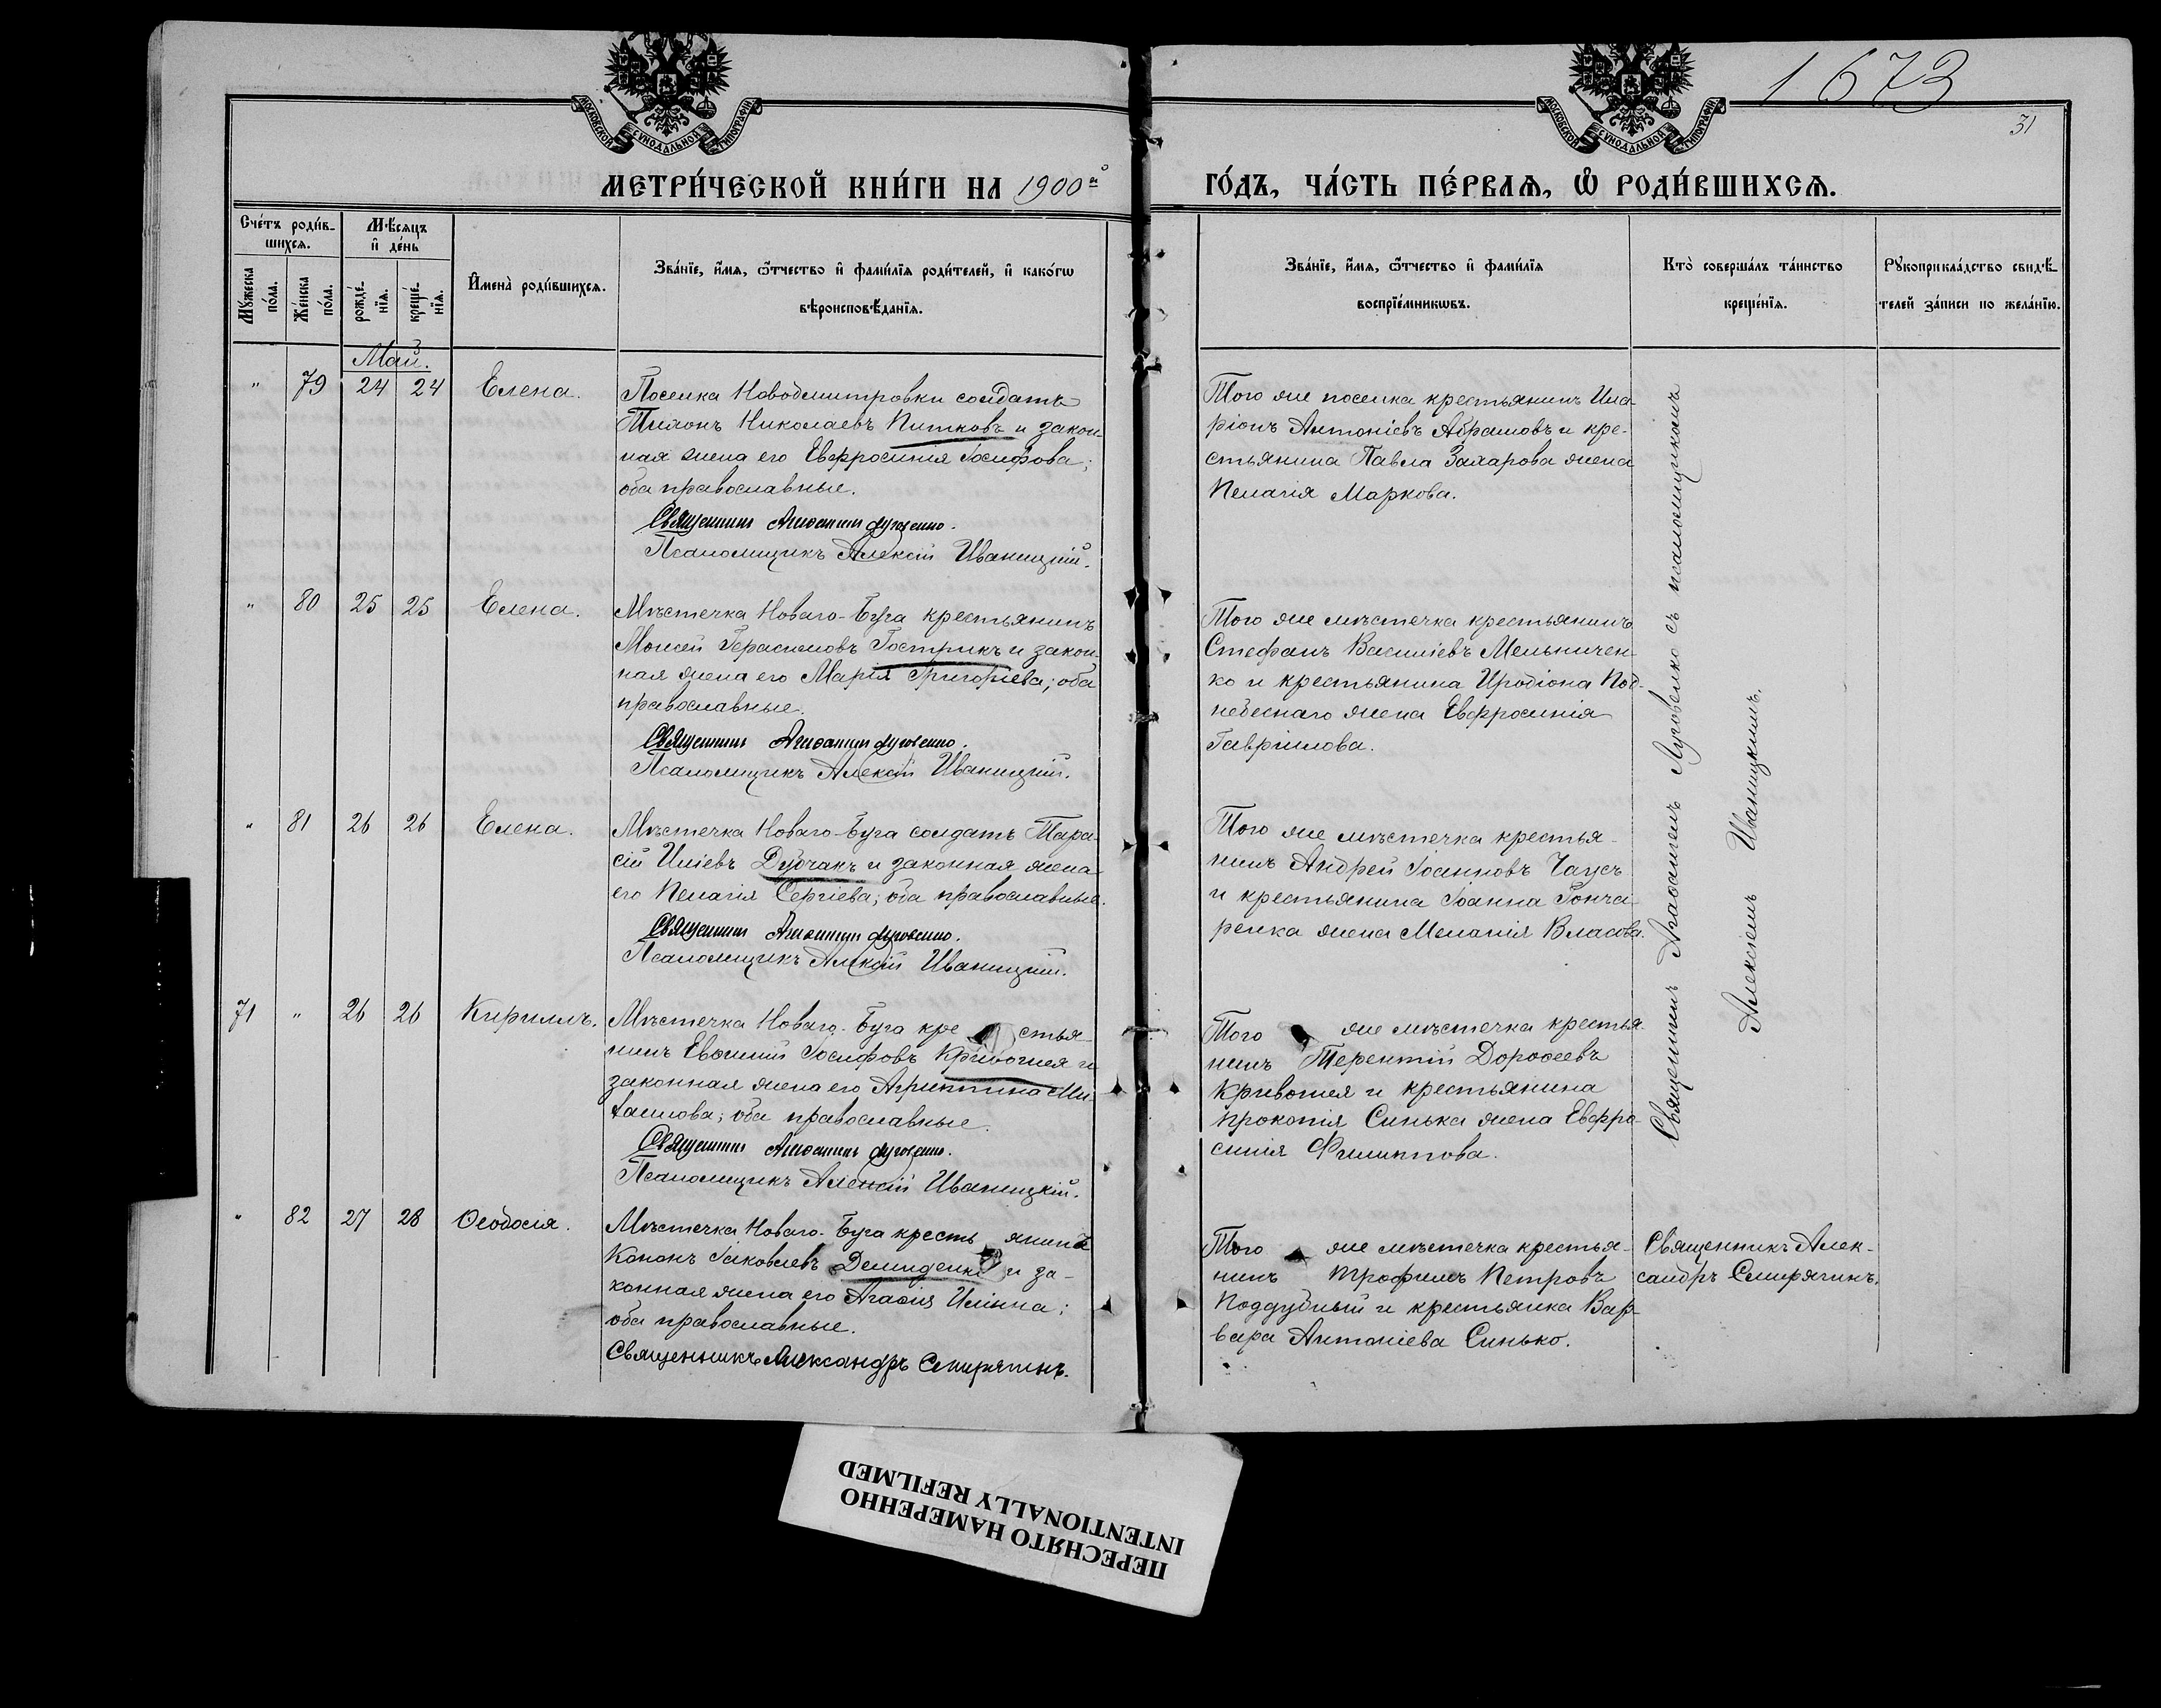 1673
31
МОСКОВСКОЙ СѴНОДАЛЬНОЙ ТИПОГРАФІИ
МОСКОВСКОЙ СѴНОДАЛЬНОЙ ТИПОГРАФІИ
МЕТРИ́ЧЕСКОЙ КНИ́ГИ НА 1900й
ГО́ДЪ, ЧА́СТЬ ПЕ́РВАѦ, Ѽ РОДИ́ВШИХСѦ.
Сче́тъ роди́в-
шихсѧ.
Мѣ́сѧцъ
и҆ де́нь
Мꙋ́жеска
по́ла.
Же́нска
по́ла.
рожде́-
нїѧ.
креще́-
нїѧ.
И҆мена̀ роди́вшихсѧ.
Зва́нїе, и҆́мѧ, ѻ҆́тчество и҆ фами́лїѧ роди́телей, и҆ како́гѡ
вѣроисповѣ́данїѧ.
Зва́нїе, и҆́мѧ, ѻ҆́тчество и҆ фами́лїѧ
воспрїе́мникѡвъ.
Кто̀ соверша́лъ та́инство
креще́нїѧ.
Рꙋкоприкла́дство свидѣ́-
телей за́писи по жела́нїю.
Май.
" 79 24 24 Елена.
Поселка Новодмитровки солдатъ
Тихонъ Николаевъ Питковъ и закон-
ная жена его Евфросинія Іосифова;
оба православные.
Священникъ Агаѳангелъ Луговенко.
Псаломщикъ Алексій Иваницкій.
Того же поселка крестьянинъ Ила-
ріонъ Антоніевъ Абрамовъ и кре-
стьянина Павла Захарова жена
Пелагія Маркова.
" 80 25 25 Елена.
Мѣстечка Новаго-Буга крестьянинъ
Моисей Герасимовъ Гострикъ и закон-
ная жена его Марія Григоріева; оба
православные.
Священникъ Агаѳангелъ Луговенко.
Псаломщикъ Алексій Иваницкій.
Того же мѣстечка крестьянинъ
Стефанъ Василіевъ Мельничен-
ко и крестьянина Иродіона Под-
небеснаго жена Евфросинія
Гавріилова.
" 81 26 26 Елена.
Мѣстечка Новаго-Буга солдатъ Тара-
сій Иліевъ Дубчакъ и законная жена
его Пелагія Сергіева; оба православные.
Священникъ Агаѳангелъ Луговенко.
Псаломщикъ Алексій Иваницкій.
Того же мѣстечка крестья-
нинъ Андрей Іоанновъ Чаусъ
и крестьянина Іоанна Гонча-
ренка жена Меланія Власова.
71 " 26 26 Кириллъ.
Мѣстечка Новаго-Буга крестья-
нинъ Евѳимій Іосифовъ Кривошея и
законная жена его Агриппина Ми-
хаилова; оба православные.
Священникъ Агаѳангелъ Луговенко.
Псаломщикъ Алексій Иваницкій.
Того же мѣстечка крестья-
нинъ Терентій Дороѳеевъ
Кривошея и крестьянина
Прокопія Синька жена Евфро-
синія Филиппова.
Священникъ Агаѳангелъ Луговенко съ псаломщикомъ
Алексіемъ Иваницкимъ.
" 82 27 28 Ѳеодосія.
Мѣстечка Новаго-Буга крестьянинъ
Кононъ Іаковлевъ Демиденко и за-
конная жена его Агаѳія Иліина;
оба православные.
Священникъ Александръ Смирягинъ.
Того же мѣстечка крестья-
нинъ Трофимъ Петровъ
Поддубный и крестьянка Вар-
вара Антоніева Синько.
Священникъ Алек-
сандръ Смирягинъ.
ПЕРЕСНЯТО НАМЕРЕННО
INTENTIONALLY REFILMED